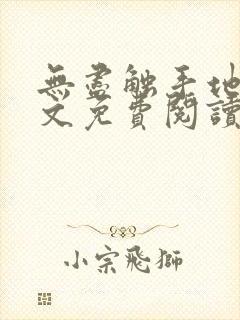 無盡觸手地
文免費閱讀
小宗飛獅